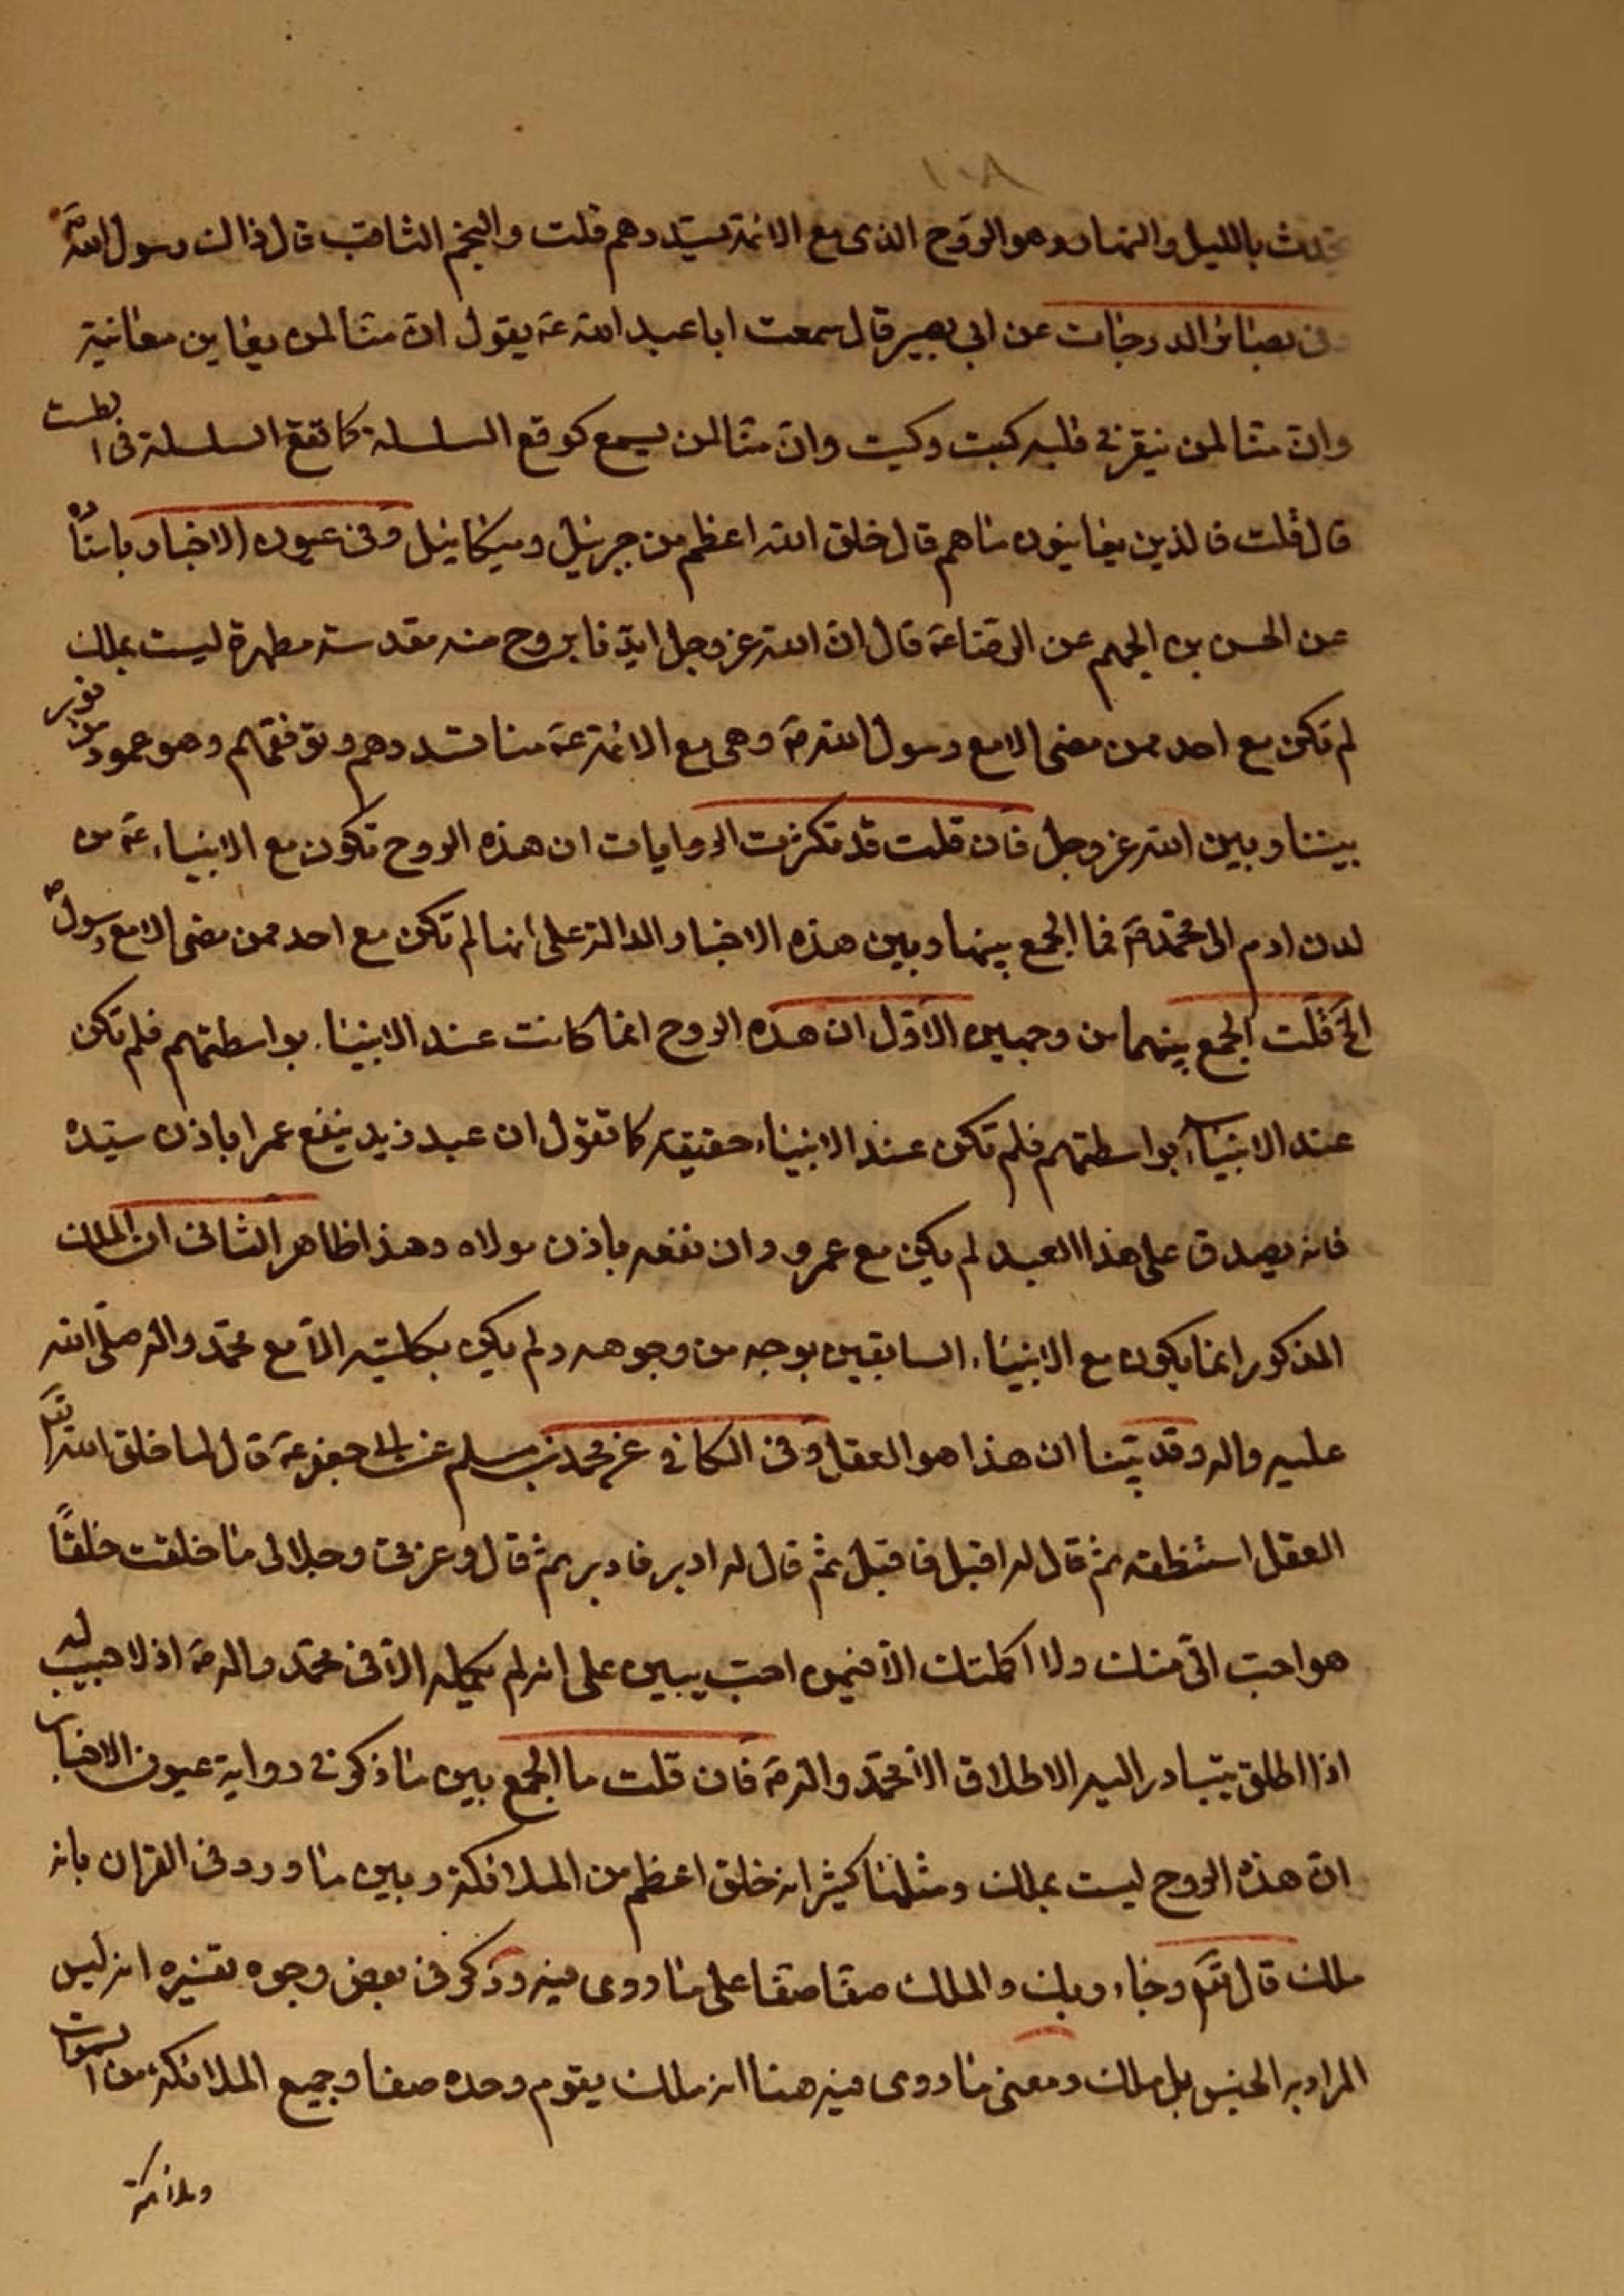 ١٠٨
يحدث بالليل والنهار وهو الروح الذى مع الائمة يسددهم قلت والنجم الثاقب قال ذاك رسول الله ص
وفى بصائر الدرجات عن ابى بصير قال سمعت ابا عبد الله ع يقول ان منا لمن يعاين معاينة
وان منا لمن ينقر فى قلبه كيت وكيت وان منا لمن يسمع كوقع السلسلة كما تقع السلسلة فى الطست
قال قلت فالذين يعاينون ما هم قال خلق الله اعظم من جبرئيل وميكائيل وفى عيون الاخبار باسناده
عن الحسن بن الجهم عن الرضا ع قال ان الله عز وجل ايدنا بروح منه مقدسة مطهرة ليست بملك
لم تكن مع احد ممن مضى الا مع رسول الله ص وهى مع الائمة ع منا تسددهم وتوفقهم وهو عمود من نور
بيننا وبين الله عز وجل فان قلت قد تكثرت الروايات ان هذه الروح تكون مع الانبياء ع من
لدن ادم الى محمد ص فما الجمع بينها وبين هذه الاخبار الدالة على انها لم تكن مع احد ممن مضى الا مع رسول ص
الخ قلت الجمع بينهما من وجهين الاول ان هذه الروح انما كانت عند الانبياء بواسطتهم فلم تكن
عند الانبياء بواسطتهم فلم تكن عند الانبياء حقيقة كما تقول ان عبد زيد ينفع عمرا باذن سيده
فانه يصدق على هذا العبد لم يكن مع عمرو وان نفعه باذن مولاه وهذا ظاهر الثانى ان الملك
المذكور انما يكون مع الانبياء السابقين بوجه من وجوهه ولم يكن بكليته الا مع محمد واله صلى الله
عليه واله وقد بينا ان هذا هو العقل وفى الكافى عن محمد بن مسلم عن ابى جعفر ع قال لما خلق الله تعالى
العقل استنطقه ثم قال له اقبل فاقبل ثم قال له ادبر فادبر ثم قال وعزتى وجلالى ما خلقت خلقا
هو احب الى منك ولا اكملتك الا فيمن احب يبين على انه لم يكمله الا فى محمد واله ص اذ لا حبيب له
اذا اطلق يتبادر اليه الاطلاق الا محمد واله ص فان قلت ما الجمع بين ما ذكر فى رواية عيون الاخبار
ان هذه الروح ليست بملك ومثلها كثير انه خلق اعظم من الملائكة وبين ما ورد فى القران بانه
ملك قال تعالى وجاء ربك والملك صفا صفا على ما روى فيه وذكر فى بعض وجوه تفسيره انه ليس
المراد به الجنس بل ملك ومعنى ما روى فيه هنا انه ملك يقوم وحده صفا وجميع الملائكة من السموات
وملائكة